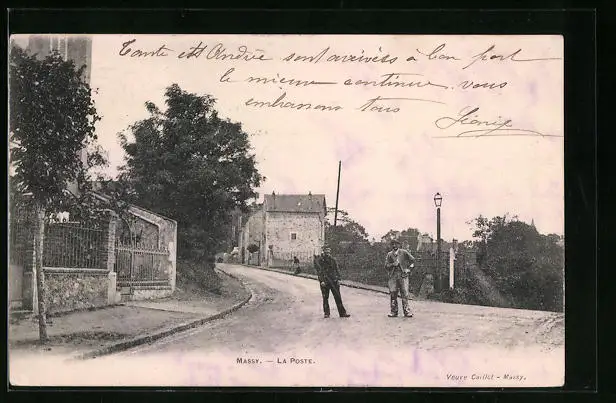 Tante et André sont arrivés à bon port
le mieux continue, vous
embrassons tous
MASSY. — LA POSTE.
Veuve Caillot - Massy.